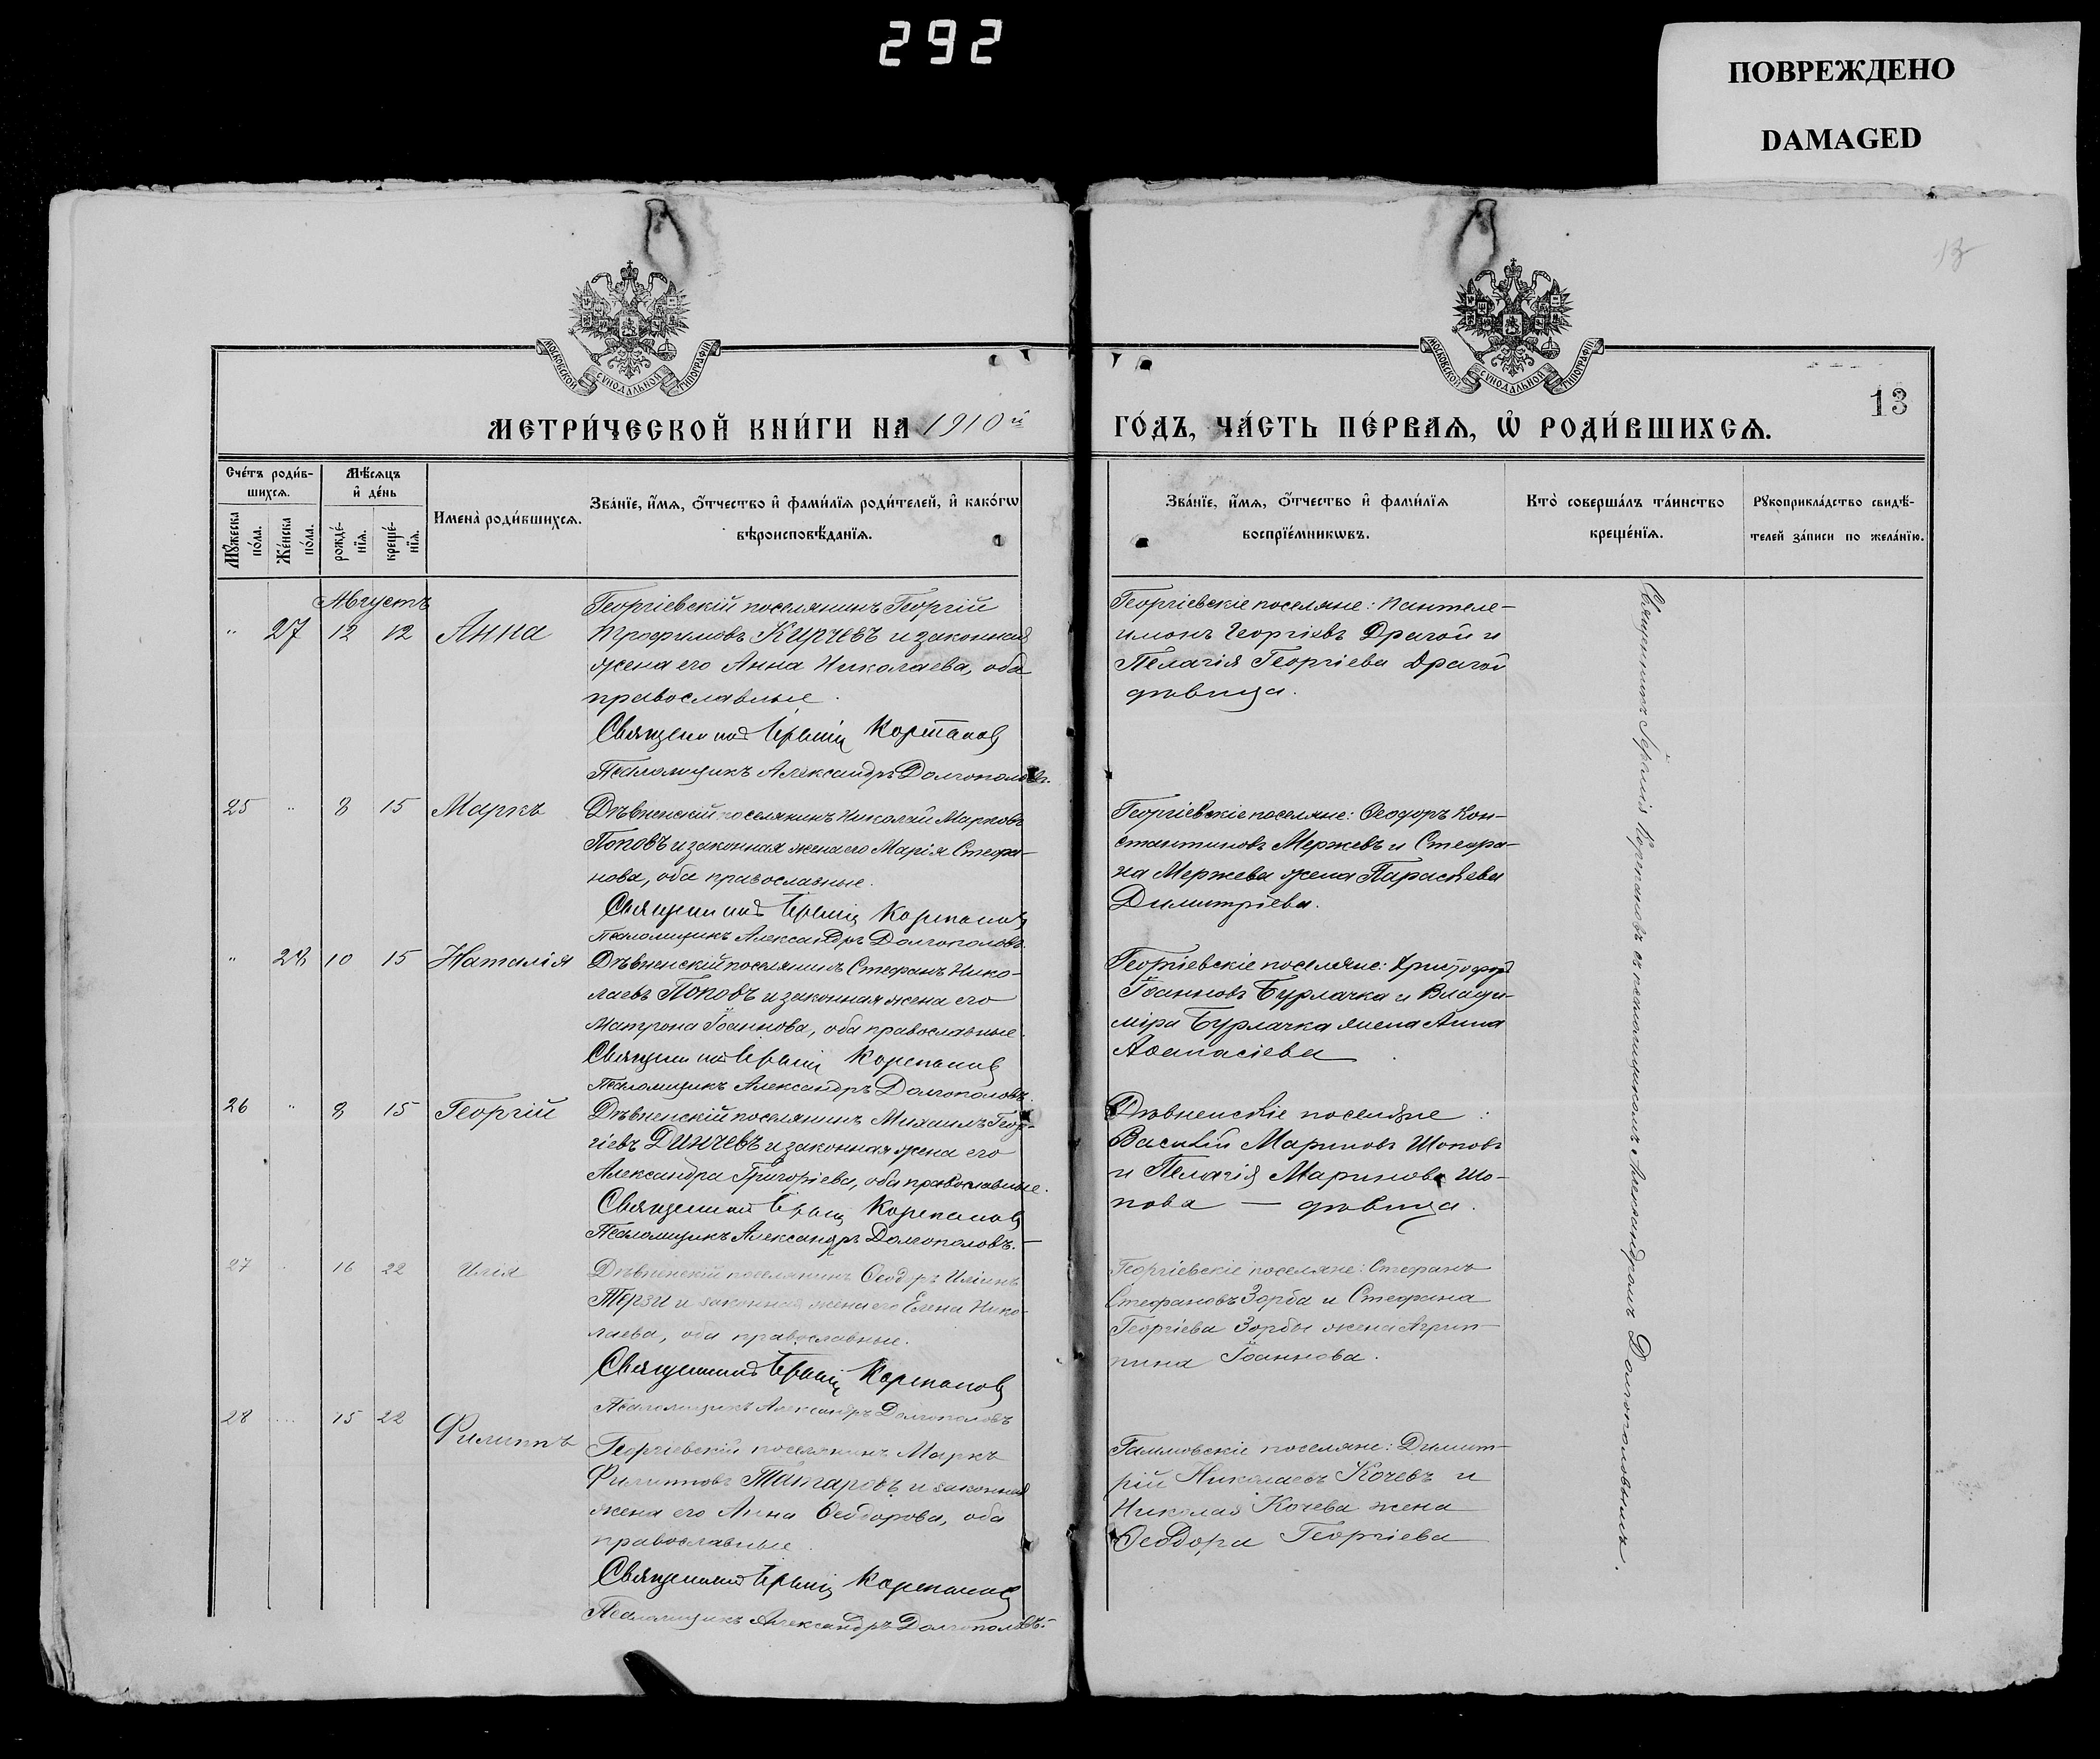 292
ПОВРЕЖДЕНО
DAMAGED
13
МОСКОВСКОЙ СУНОДАЛЬНОЙ ТИПОГРАФІИ
МОСКОВСКОЙ СУНОДАЛЬНОЙ ТИПОГРАФІИ
13
МЕТРИ́ЧЕСКОЙ КНИ́ГИ НА 1910й
ГО́ДЪ, ЧА́СТЬ ПЕ́РВАѦ, Ѡ҆ РОДИ́ВШИХСѦ.
Сче́тъ роди́в-
шихсѧ.
Мꙋ́жеска по́ла.
Же́нска по́ла.
Мѣ́сѧцъ
и҆ де́нь
рожде́-
нїѧ.
креще́-
нїѧ.
Имена̀ роди́вшихсѧ.
Зва́нїе, и҆́мѧ, ѻ҆́тчество и҆ фами́лїѧ роди́телей, и҆ како́гѡ
вѣроисповѣ́данїѧ.
Зва́нїе, и҆́мѧ, ѻ҆́тчество и҆ фами́лїѧ
воспрїе́мникѡвъ.
Кто̀ соверша́лъ та́инство
креще́нїѧ.
Рꙋкоприкла́дство свидѣ́-
телей за́писи по жела́нїю.
Августъ
" 27 12 12 Анна
Георгіевскій поселянинъ Георгій
Трофимовъ Кирчевъ и законная
жена его Анна Николаева, оба
православные.
Священникъ Сергій Корпанов
Псаломщикъ Александръ Долгополовъ.
Георгіевскіе поселяне: Пантеле-
имонъ Георгіевъ Драгой и
Пелагія Георгіева Драгой
дѣвица.
25 " 8 15 Маркъ
Дѣвненскій поселянинъ Николай Марковъ
Поповъ и законная жена его Марія Стефа-
нова, оба православные.
Священникъ Сергій Корпанов
Псаломщикъ Александръ Долгополовъ.
Георгіевскіе поселяне: Ѳеодоръ Кон-
стантиновъ Мержевъ и Стефа-
на Мержева жена Параскева
Димитріева.
" 28 10 15 Наталія
Дѣвненскій поселянинъ Стефанъ Нико-
лаевъ Поповъ и законная жена его
Матрона Іоаннова, оба православные.
Священникъ Сергій Корпанов
Псаломщикъ Александръ Долгополовъ.
Георгіевскіе поселяне: Христофоръ
Іоанновъ Бурлачка и Влади-
міра Бурлачка жена Анна
Аѳанасіева
26 " 8 15 Георгій
Дѣвненскій поселянинъ Михаилъ Геор-
гіевъ Динчевъ и законная жена его
Александра Григоріева, оба православные.
Священникъ Сергій Корпанов
Псаломщикъ Александръ Долгополовъ.
Дѣвненскіе поселяне:
Василій Мариновъ Шоповъ
и Пелагія Маринова Шо-
пова — дѣвица.
27 " 16 22 Илія
Дѣвненскій поселянинъ Ѳеодоръ Иліинъ
Терзи и законная жена его Елена Нико-
лаева, оба православные.
Священникъ Сергій Корпанов
Псаломщикъ Александръ Долгополовъ
Георгіевскіе поселяне: Стефанъ
Стефановъ Зорба и Стефана
Георгіева Зорбы жена Агрип-
пина Іоаннова.
28 " 15 22 Филиппъ
Георгіевскій поселянинъ Маркъ
Филипповъ Татаровъ и законная
жена его Анна Ѳеодорова, оба
православные.
Священникъ Сергій Корпанов
Псаломщикъ Александръ Долгополовъ.
Гаммовскіе поселяне: Димит-
рій Николаевъ Кочевъ и
Николая Кочева жена
Ѳеодора Георгіева
Священникъ Сергій Корпановъ съ псаломщикомъ Александромъ Долгополовымъ.